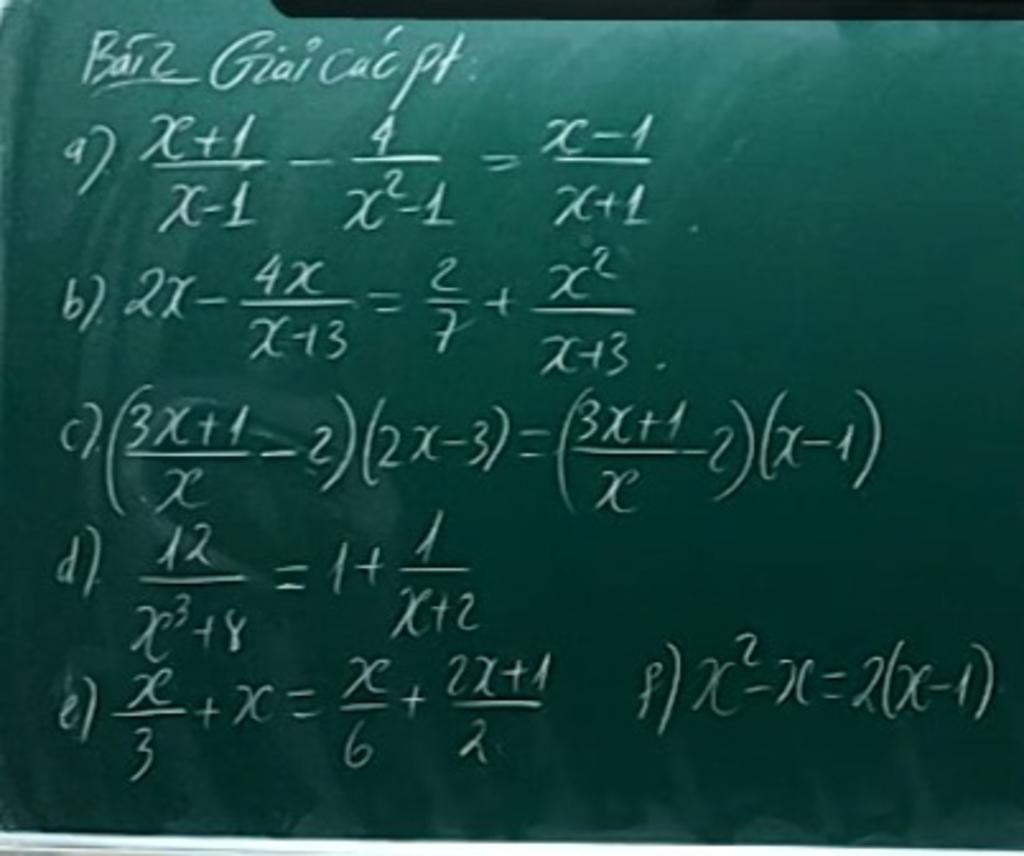 Bài 2 Giải các pt:
a) \frac{x+1}{x-1} - \frac{4}{x^2-1} = \frac{x-1}{x+1}.
b) 2x - \frac{4x}{x+3} = \frac{2}{7} + \frac{x^2}{x+3}.
c) (\frac{3x+1}{x} - 2)(2x-3) = (\frac{3x+1}{x} - 2)(x-1)
d) \frac{12}{x^3+8} = 1 + \frac{1}{x+2}
e) \frac{x}{3} + x = \frac{x}{6} + \frac{2x+1}{2} f) x^2 - x = 2(x-1)